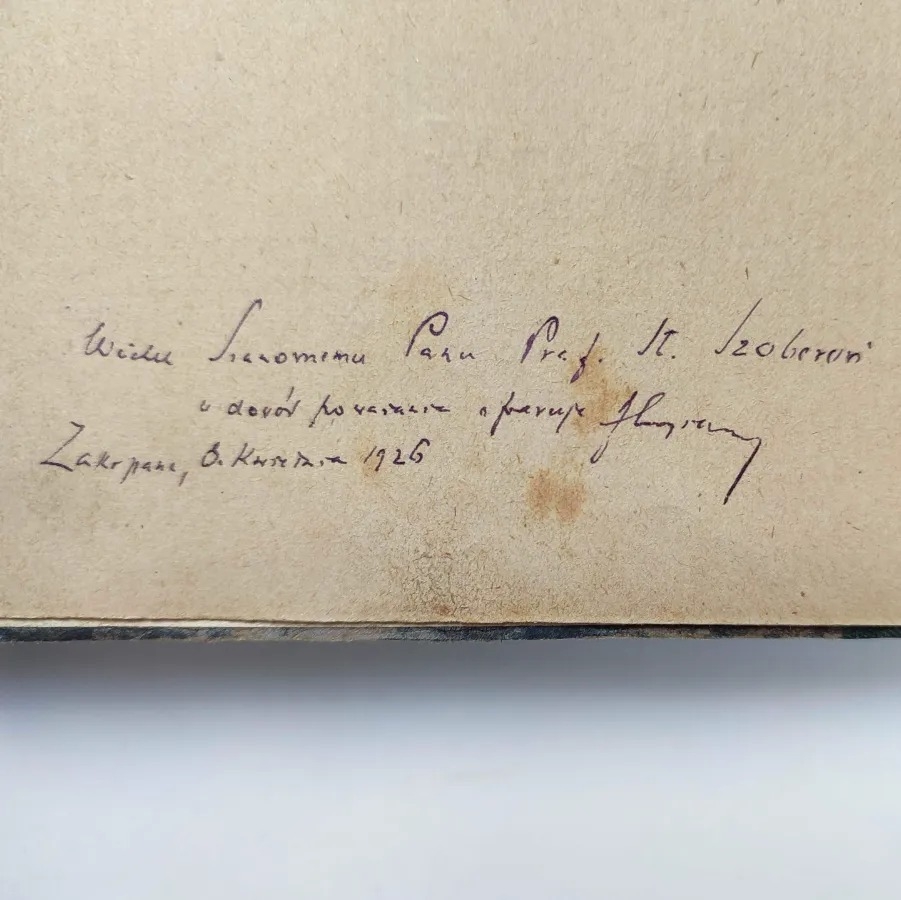 Wielce Szanownemu Panu Prof. St. Szoberowi
w dowód poważania ofiaruje
Zakopane, 8. Kwietnia 1926